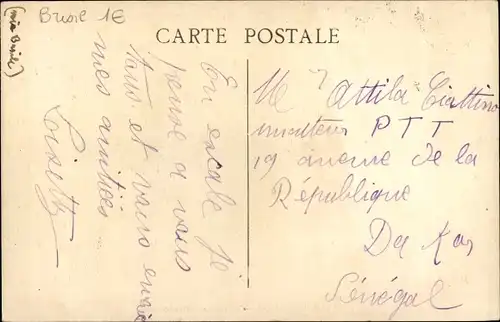 (mia Brisée)
Brisée 1€
CARTE POSTALE
En escale je
pense à vous
tous et vous envoie
mes amitiés
Lisette
M Attila Ciattino
PTT
19 avenue de la
République
Dakar
Sénégal